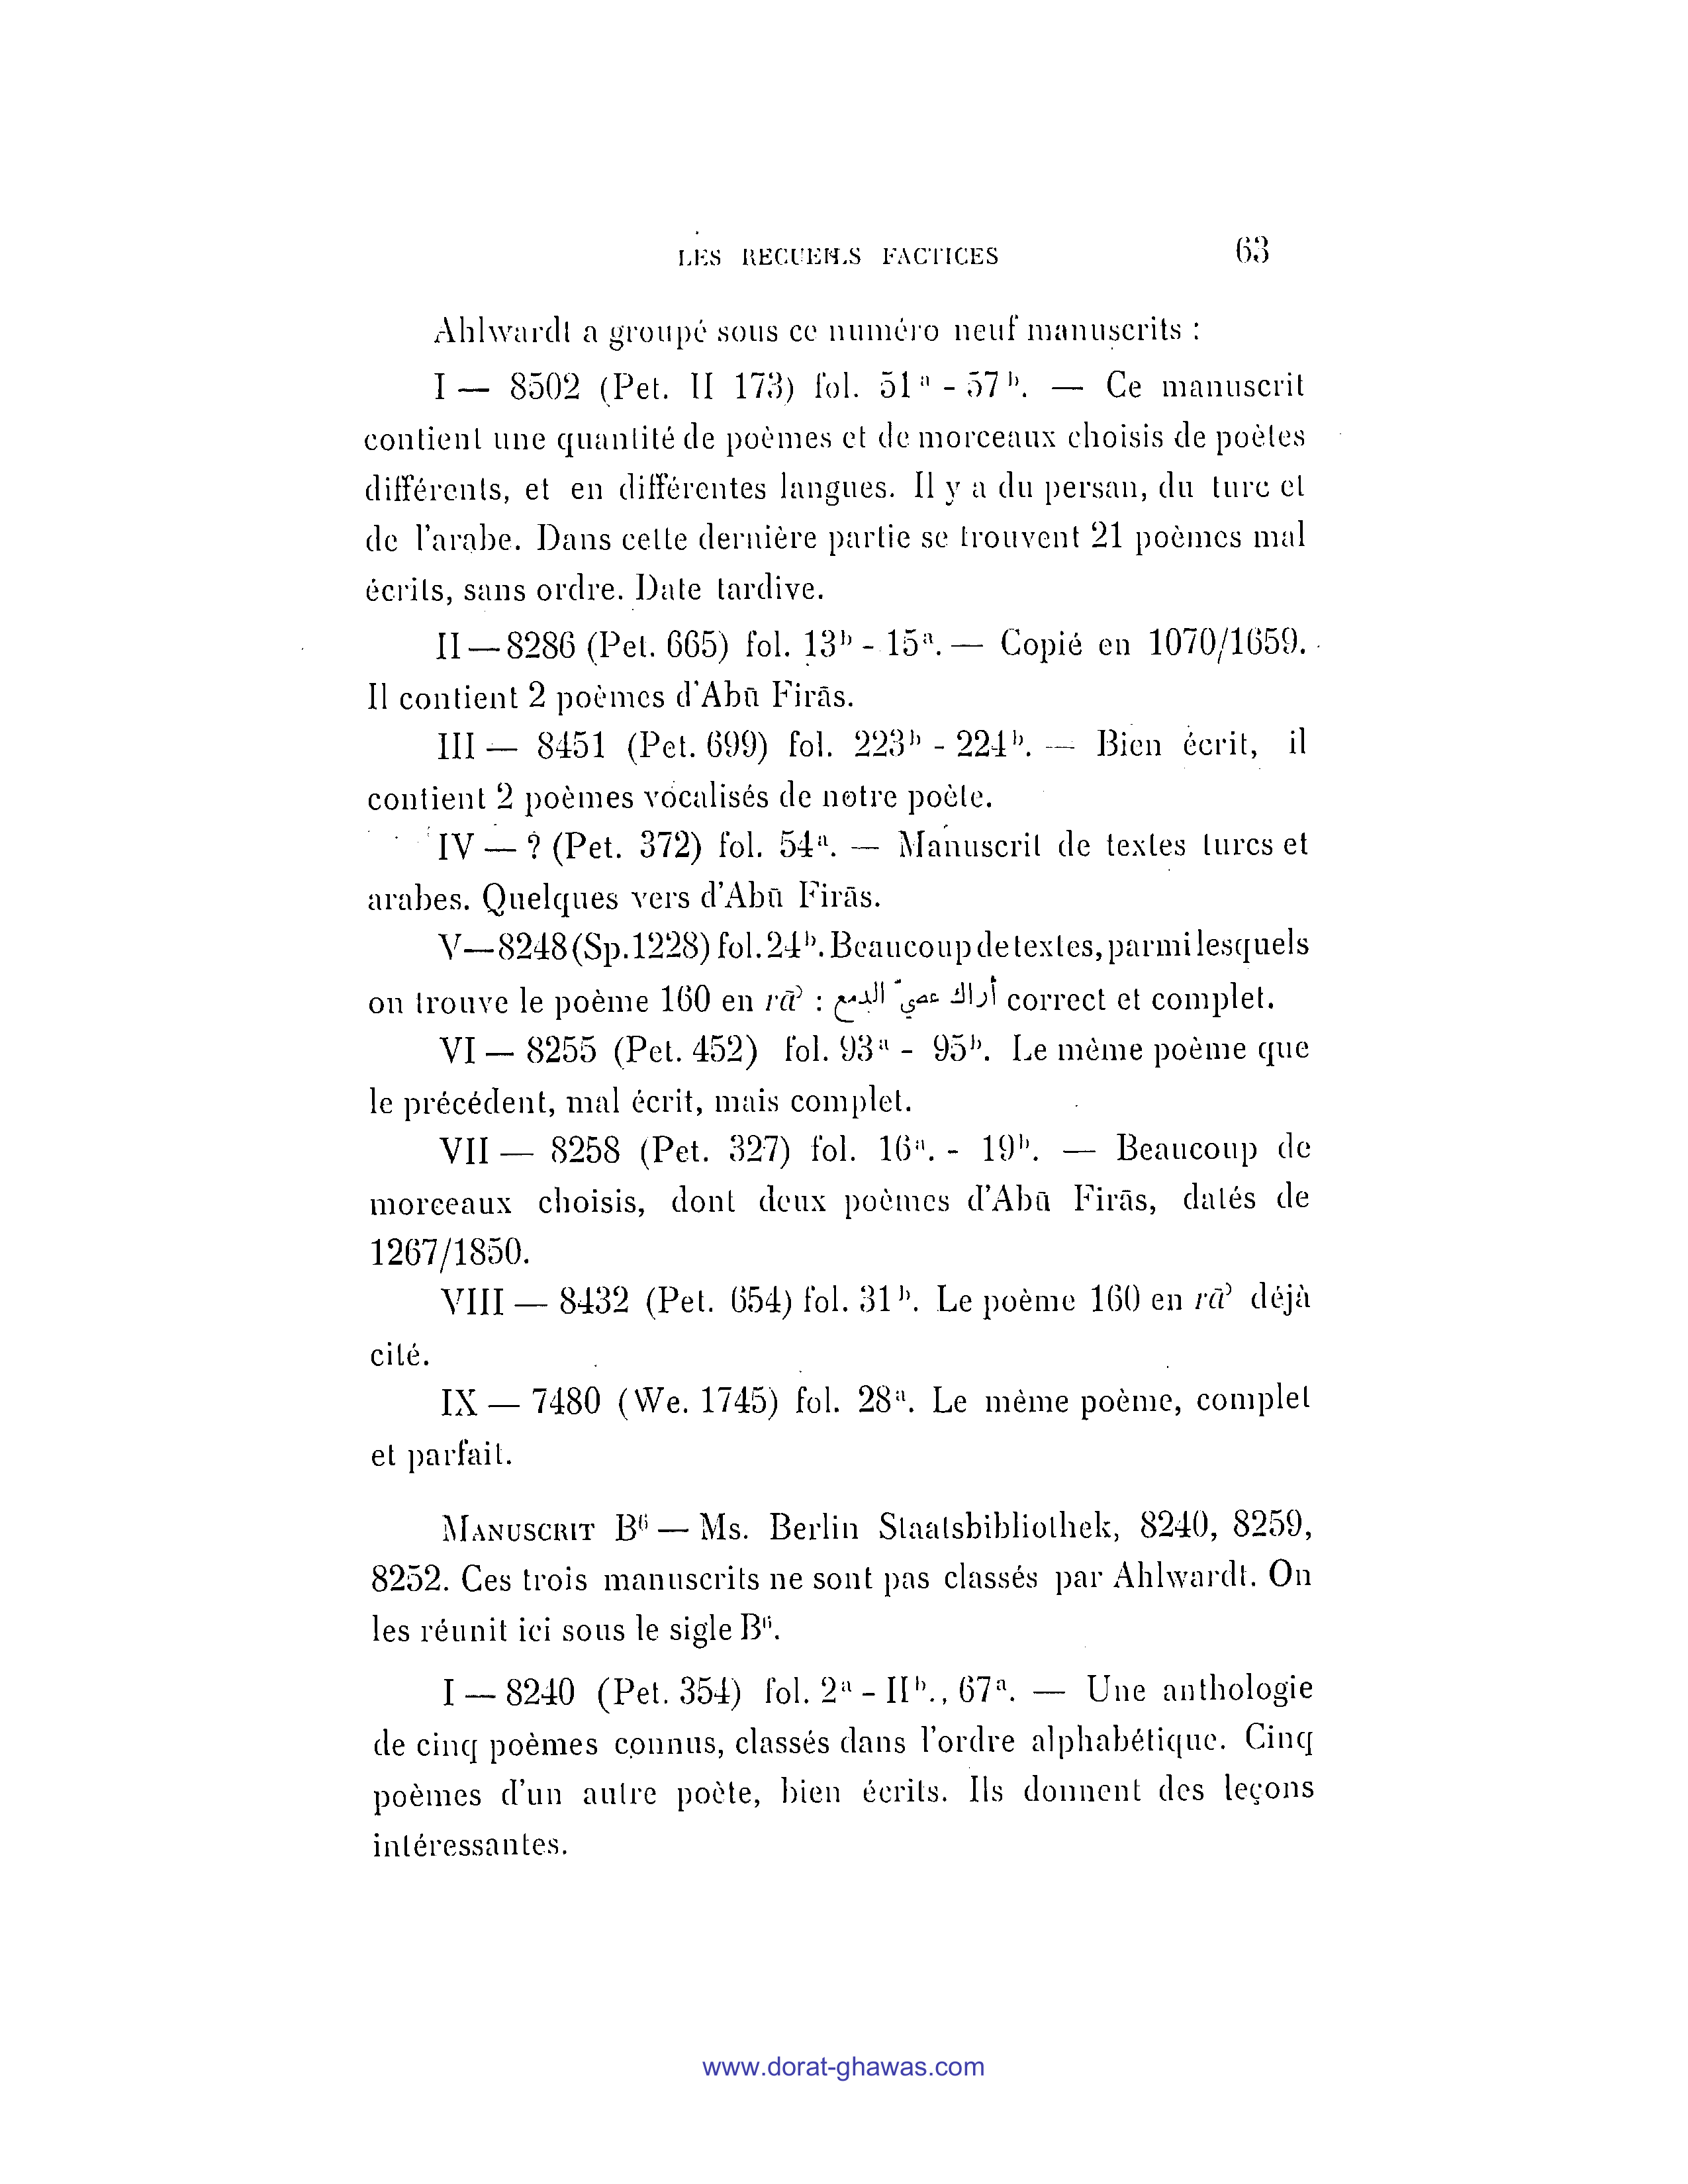 LES RECUEILS FACTICES 63
Ahlwardt a groupé sous ce numéro neuf manuscrits :
I — 8502 (Pet. II 173) fol. 51ᵃ - 57ᵇ. — Ce manuscrit
contient une quantité de poèmes et de morceaux choisis de poètes
différents, et en différentes langues. Il y a du persan, du turc et
de l'arabe. Dans cette dernière partie se trouvent 21 poèmes mal
écrits, sans ordre. Date tardive.
II — 8286 (Pet. 665) fol. 13ᵇ - 15ᵃ. — Copié en 1070/1659.
Il contient 2 poèmes d'Abū Firās.
III — 8451 (Pet. 699) fol. 223ᵇ - 224ᵇ. — Bien écrit, il
contient 2 poèmes vocalisés de notre poète.
IV — ? (Pet. 372) fol. 54ᵃ. — Manuscrit de textes turcs et
arabes. Quelques vers d'Abū Firās.
V — 8248 (Sp. 1228) fol. 24ᵇ. Beaucoup de textes, parmi lesquels
on trouve le poème 160 en rāʾ : أراك عصيّ الدمع correct et complet.
VI — 8255 (Pet. 452) fol. 93ᵃ - 95ᵇ. Le même poème que
le précédent, mal écrit, mais complet.
VII — 8258 (Pet. 327) fol. 16ᵃ. - 19ᵇ. — Beaucoup de
morceaux choisis, dont deux poèmes d'Abū Firās, datés de
1267/1850.
VIII — 8432 (Pet. 654) fol. 31ᵇ. Le poème 160 en rāʾ déjà
cité.
IX — 7480 (We. 1745) fol. 28ᵃ. Le même poème, complet
et parfait.
MANUSCRIT B⁶ — Ms. Berlin Staatsbibliothek, 8240, 8259,
8252. Ces trois manuscrits ne sont pas classés par Ahlwardt. On
les réunit ici sous le sigle B⁶.
I — 8240 (Pet. 354) fol. 2ᵃ - IIᵇ., 67ᵃ. — Une anthologie
de cinq poèmes connus, classés dans l'ordre alphabétique. Cinq
poèmes d'un autre poète, bien écrits. Ils donnent des leçons
intéressantes.
www.dorat-ghawas.com